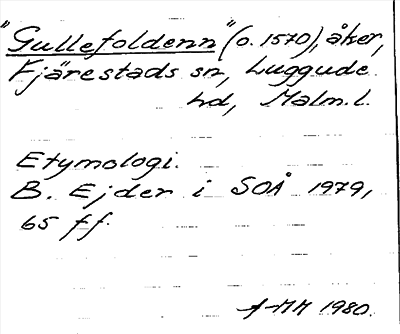 "Gullefoldenn" (o. 1570), åker,
Fjärestads sn, Luggude
hd, Malm. l.
Etymologi.
B. Ejder i SOÅ 1979,
65 ff.
1980.